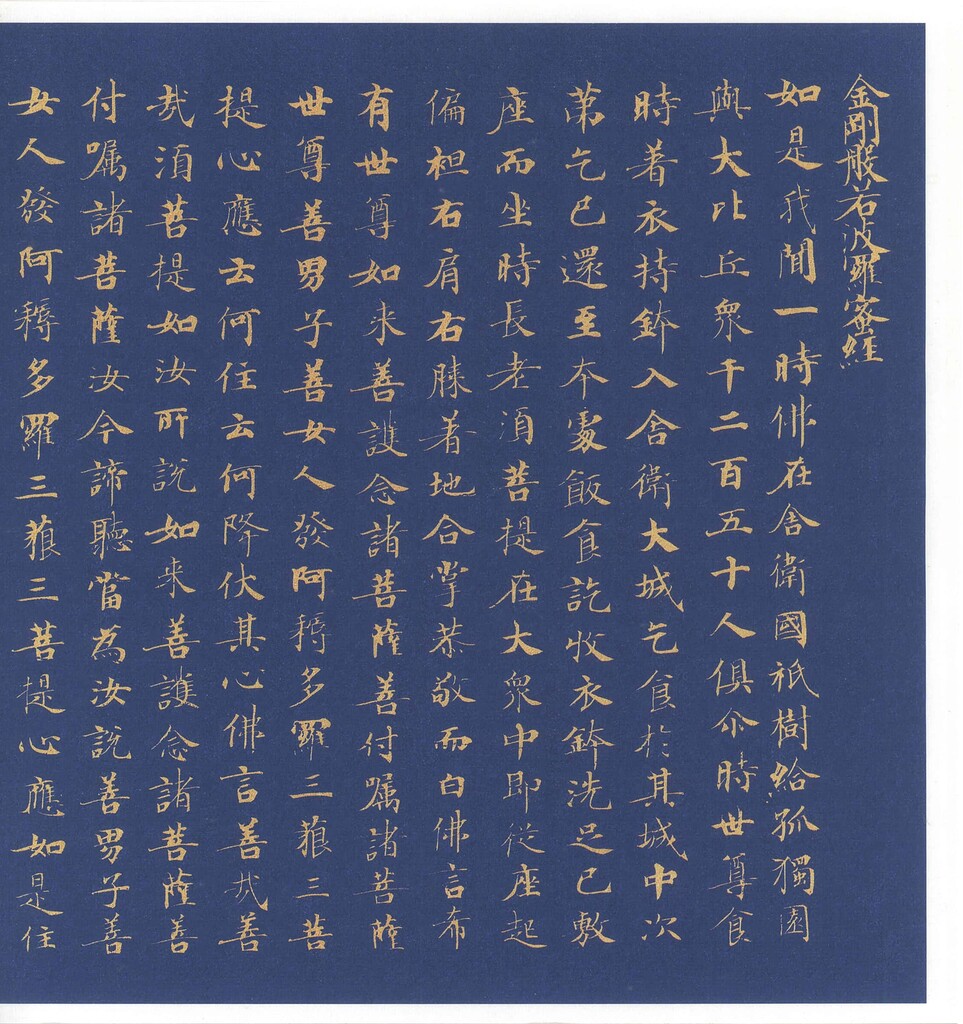 金剛般若波羅蜜經
如是我聞一時佛在舍衛國祇樹給孤獨園
與大比丘衆千二百五十人俱尒時世尊食
時著衣持鉢入舍衛大城乞食於其城中次
苐乞已還至本處飯食訖收衣鉢洗足已敷
座而坐時長老湏菩提在大衆中即從座起
偏袒右肩右膝著地合掌恭敬而白佛言希
有世尊如来善護念諸菩薩善付嘱諸菩薩
世尊善男子善女人發阿耨多羅三藐三菩
提心應云何住云何降伏其心佛言善哉善
哉湏菩提如汝所說如来善護念諸菩薩善
付嘱諸菩薩汝今諦聽當為汝說善男子善
女人發阿耨多羅三藐三菩提心應如是住